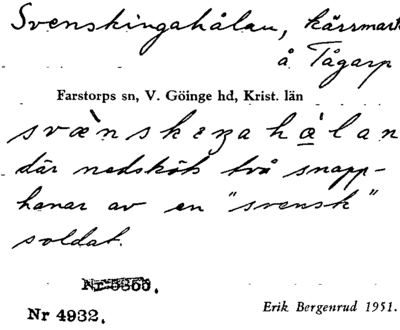 Svenskingahålan, kärrmark
å Tågarp
Farstorps sn, V. Göinge hd, Krist. län
där nedsköts två snapp-
hanar av en "svensk"
soldat.
Nr 4932.
Erik Bergenrud 1951.